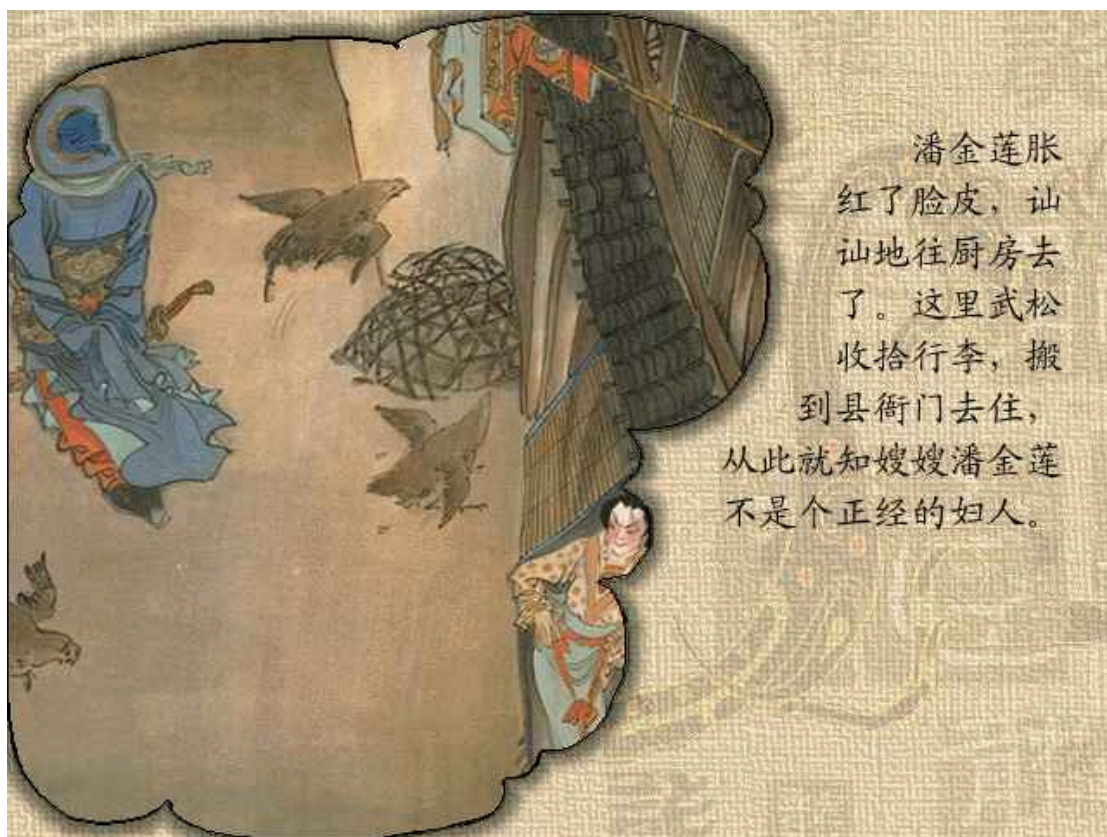 潘金莲胀
红了脸皮，讪
讪地往厨房去
了。这里武松
收拾行李，搬
到县衙门去住，
从此就知嫂嫂潘金莲
不是个正经的妇人。